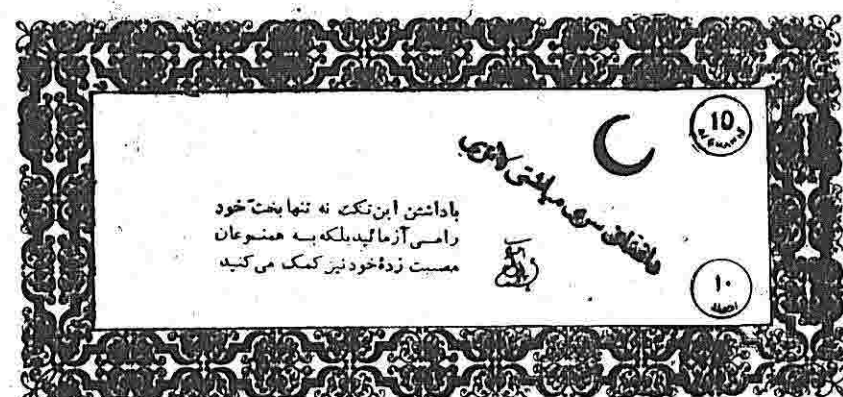 10
AFGHANIS
دافغانی سری میاشتی لاتری
باداشتن این تکت نه تنها بخت خود
رامی آزمائید بلکه به همنوعان
مصیبت زدهٔ خود نیز کمک می کنید
۱۰